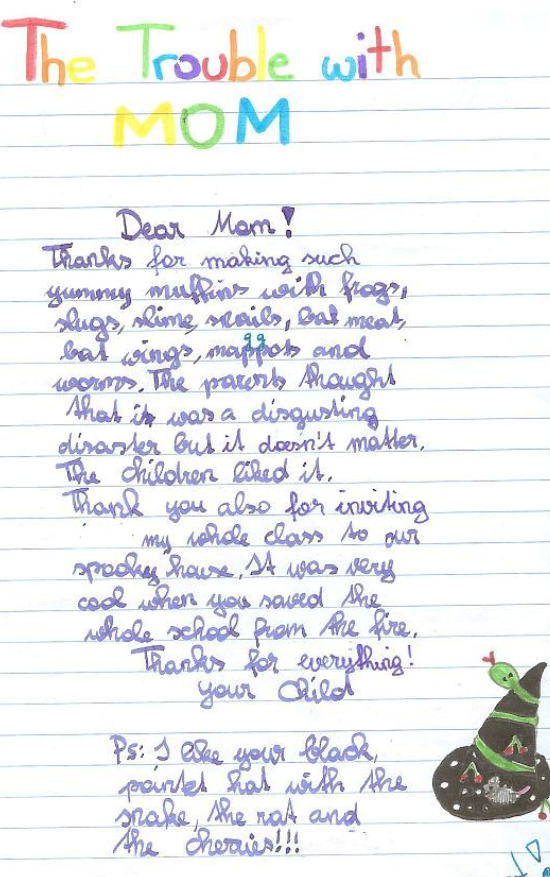 The Trouble with
MOM
Dear Mom!
Thanks for making such
yummy muffins with frogs,
slugs, slime, snails, bat meat,
bat wings, maggots and
worms. The parents thought
that it was a disgusting
disaster but it doesn't matter.
The children liked it.
Thank you also for inviting
my whole class to our
spooky house. It was very
cool when you saved the
whole school from the fire.
Thanks for everything!
Your Child
Ps: I like your black,
pointet hat with the
snake, the rat and
the cherries!!!